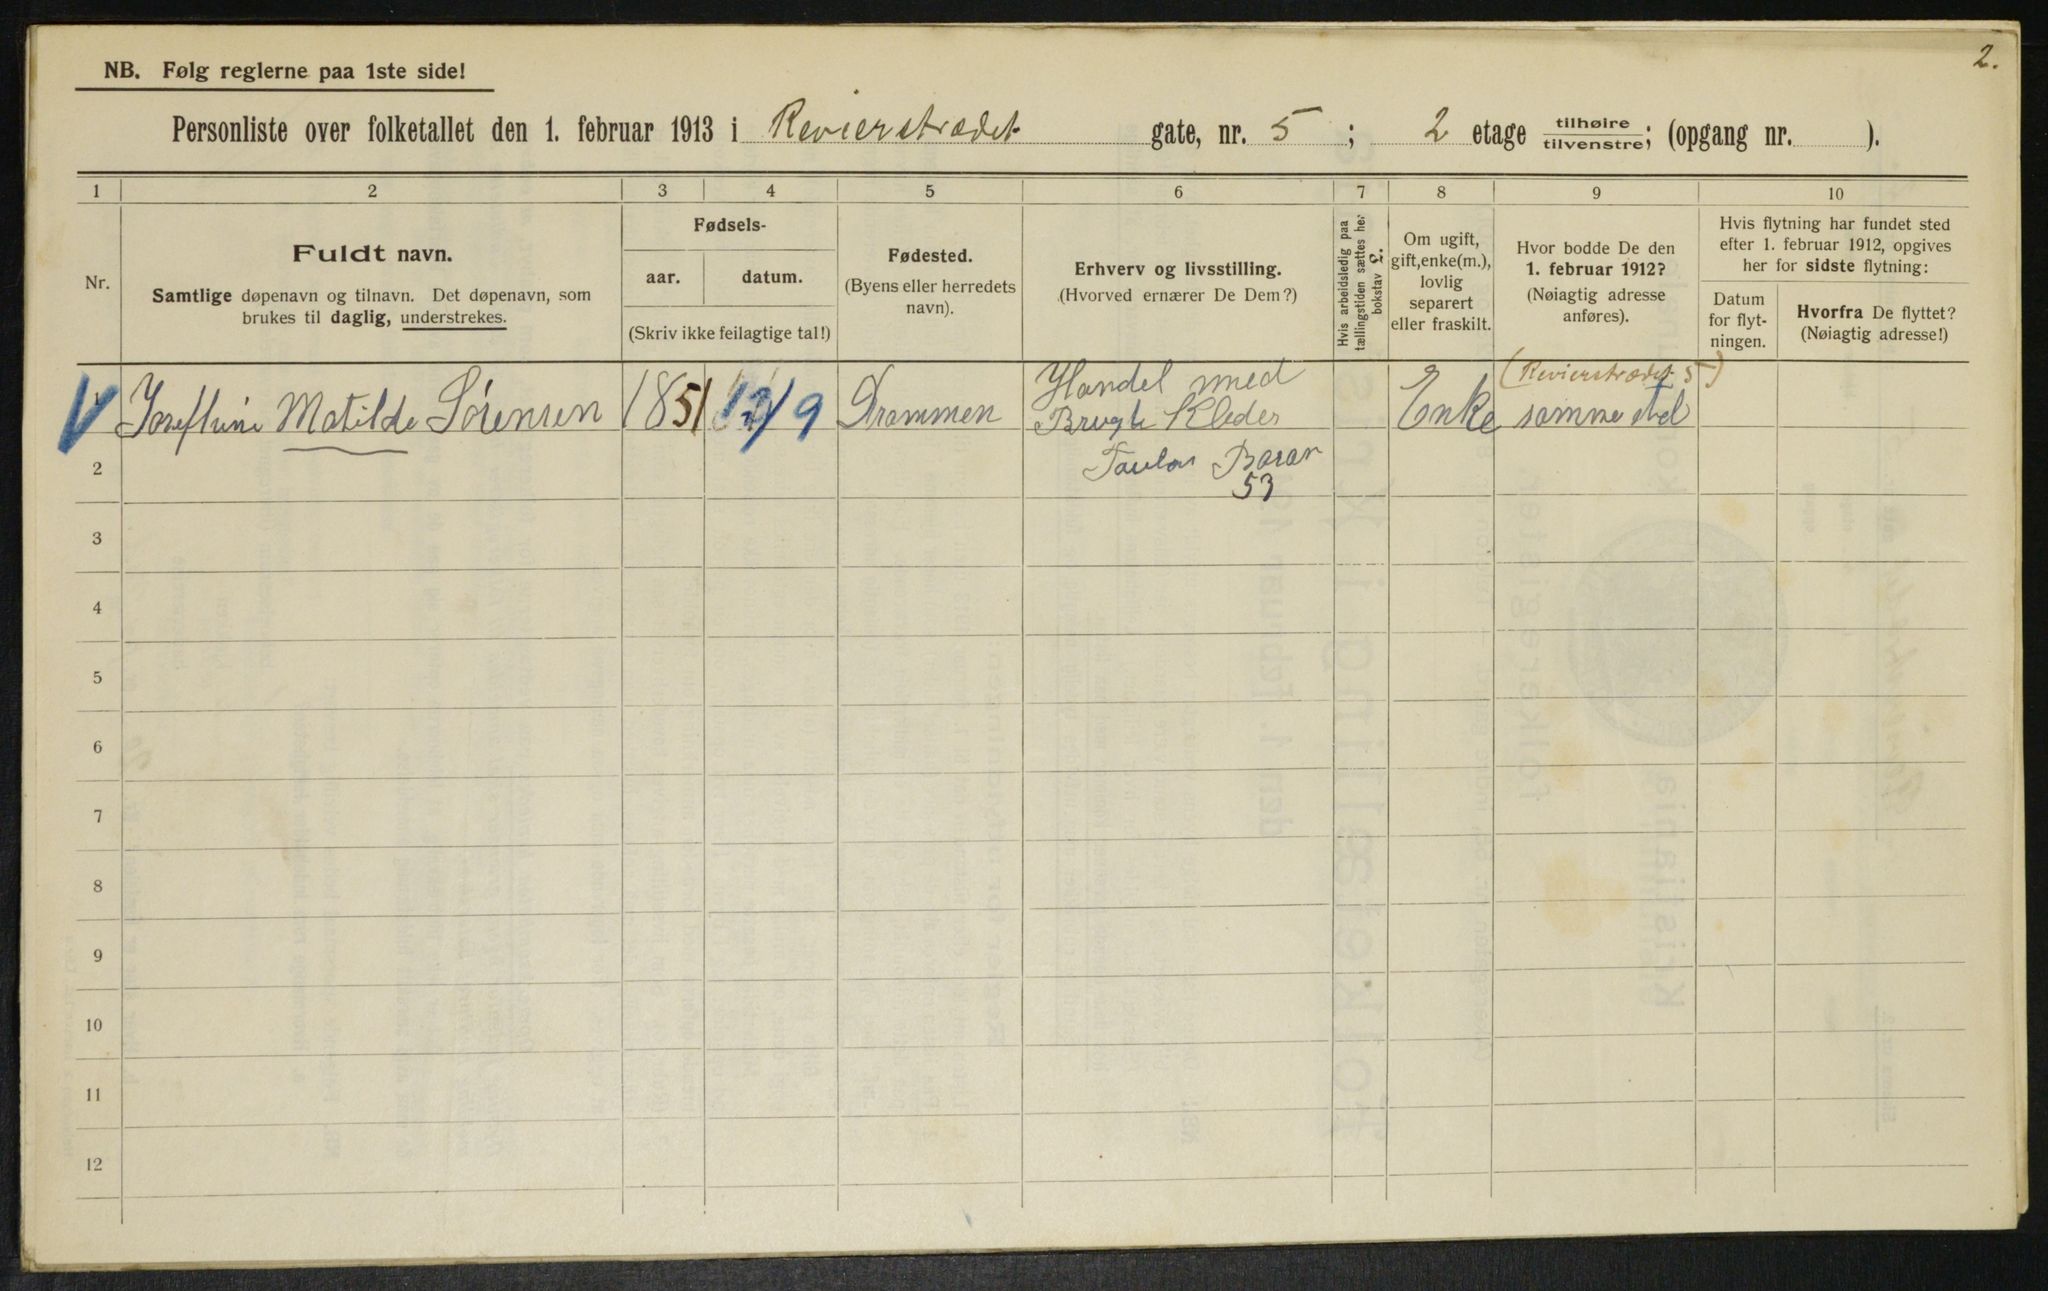 2.
NB. Følg reglerne paa 1ste side!
Personliste over folketallet den 1. februar 1913 i Revierstrædet gate, nr. 5 ; 2 etage tilhøire/tilvenstre; (opgang nr. ).
1 2 3 4 5 6 7 8 9 10
Nr.
Fuldt navn.
Samtlige døpenavn og tilnavn. Det døpenavn, som
brukes til daglig, understrekes.
Fødsels-
aar. datum.
(Skriv ikke feilagtige tal!)
Fødested.
(Byens eller herredets
navn).
Erhverv og livsstilling.
(Hvorved ernærer De Dem?)
Hvis arbeidsledig paa
tællingstiden sættes her
bokstav L.
Om ugift,
gift, enke(m.),
lovlig
separert
eller fraskilt.
Hvor bodde De den
1. februar 1912?
(Nøiagtig adresse
anføres).
Hvis flytning har fundet sted
efter 1. februar 1912, opgives
her for sidste flytning:
Datum
for flyt-
ningen.
Hvorfra De flyttet?
(Nøiagtig adresse!)
Matilde Sörensen 1851 12/9 Drammen
Handel med
Brugte Klæder
Basar
53
Enke
(Revierstrædet 5)
samme sted
2
3
4
5
6
7
8
9
10
11
12